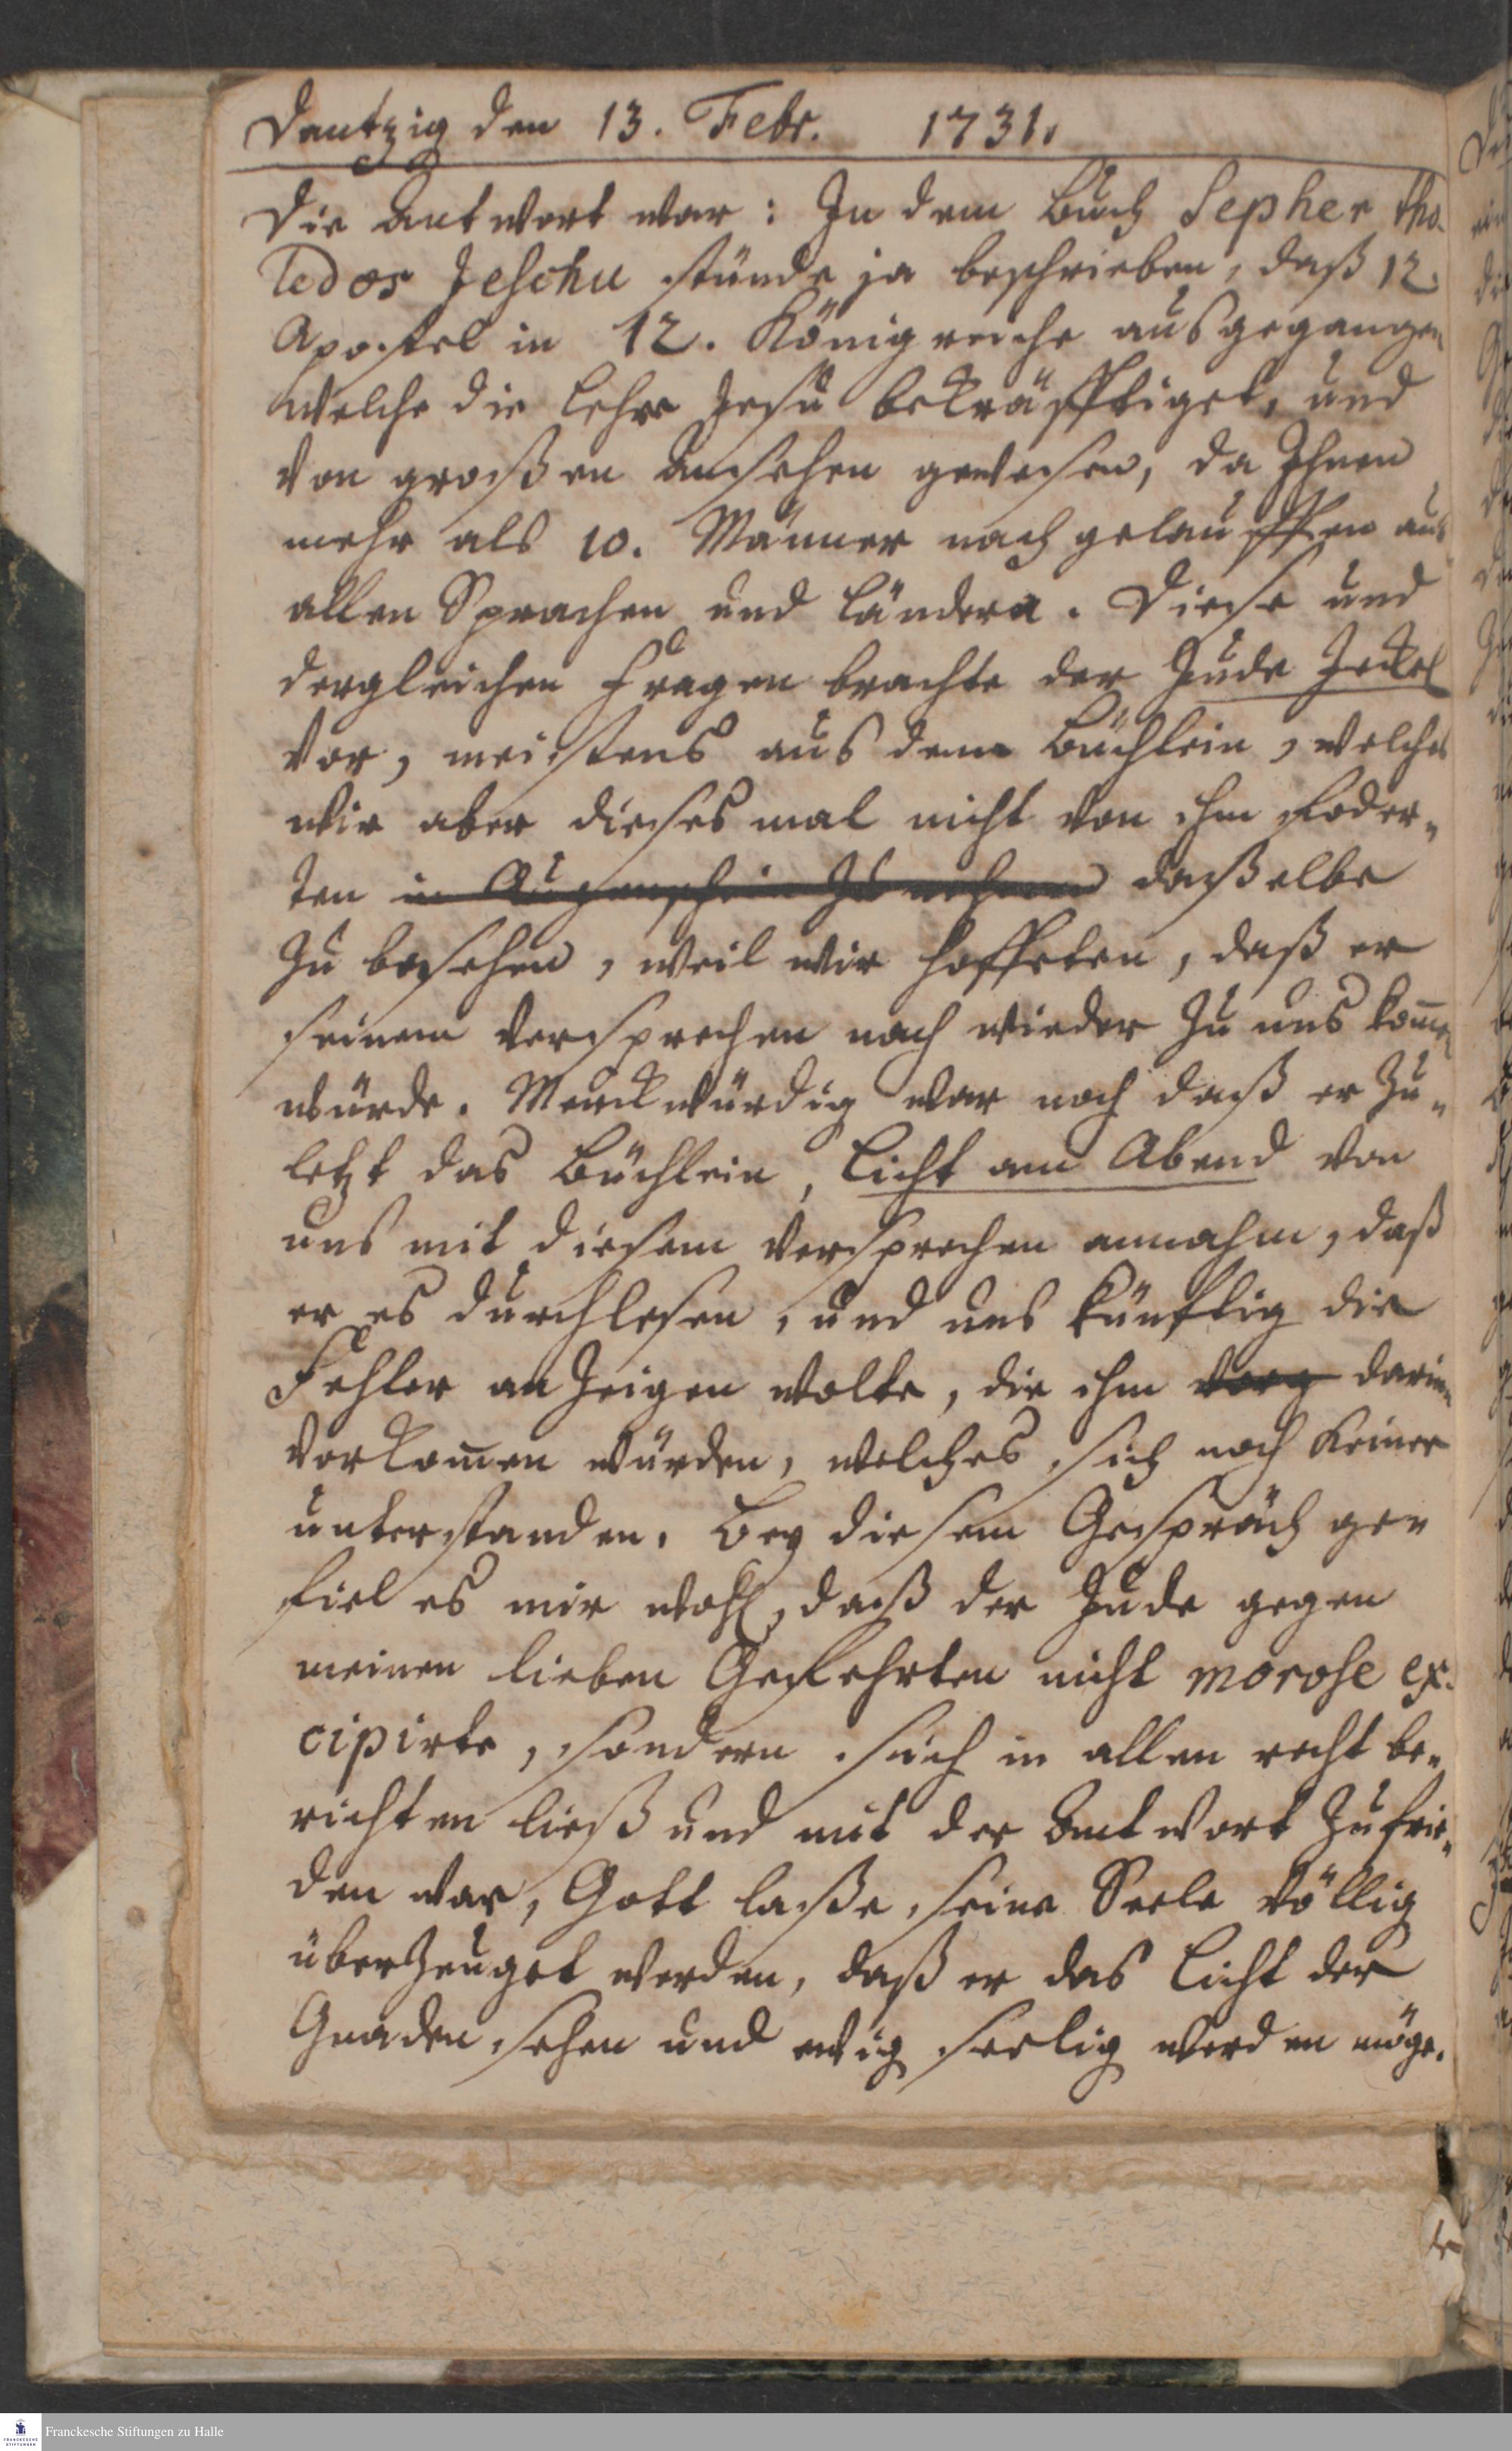 Dantzig den 13. Febr. 1731.
Die Antwort war: In dem Buch Sepher tho-
ledos Jeschu stünde ja beschrieben, daß 12.
Apostel in 12. Königreiche ausgegangen
welche die Lehre Jesu bekräfftiget, und
von großen Ansehen gewesen, da Ihnen
mehr als 10. Männer nachgelauffen aus
allen Sprachen und Ländern. Diese und
dergleichen Fragen brachte der Jude Jeckel
vor, meistens aus dem Büchlein, welches
wir aber dieses mal nicht von ihm foder-
ten in Augenschein zu nehmen daßelbe
zu besehen, weil wir hoffeten, daß er
seinem Versprechen nach wieder zu uns kom̅en
würde. Merckwürdig war noch daß er zu-
letzt das Büchlein, Licht am Abend von
uns mit diesem Versprechen annahm, daß
er es durchlesen, und uns künftig die
Fehler anzeigen wolte, die ihm vorg darin-
vorkom̅en würden, welches sich noch keiner
unterstanden. Bey diesem Gespräch ge-
fiel es mir wohl, daß der Jude gegen
meinen lieben Gefehrten nicht morose ex-
cipirte, sondern sich in allen recht be-
richten ließ und mit der Antwort zufrie-
den war, Gott laße seine Seele völlig
überzeuget werden, daß er das Licht der
Gnaden sehen und ewig seelig werden möge.
Franckesche Stiftungen zu Halle